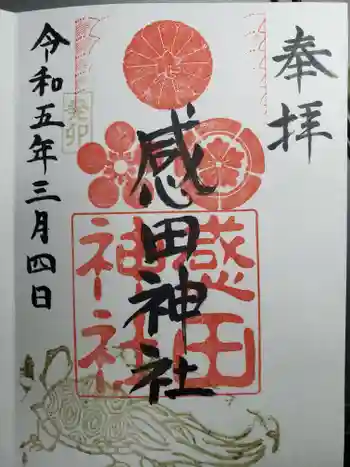 奉拝
感田神社
感田
神社
癸卯
令和五年三月四日